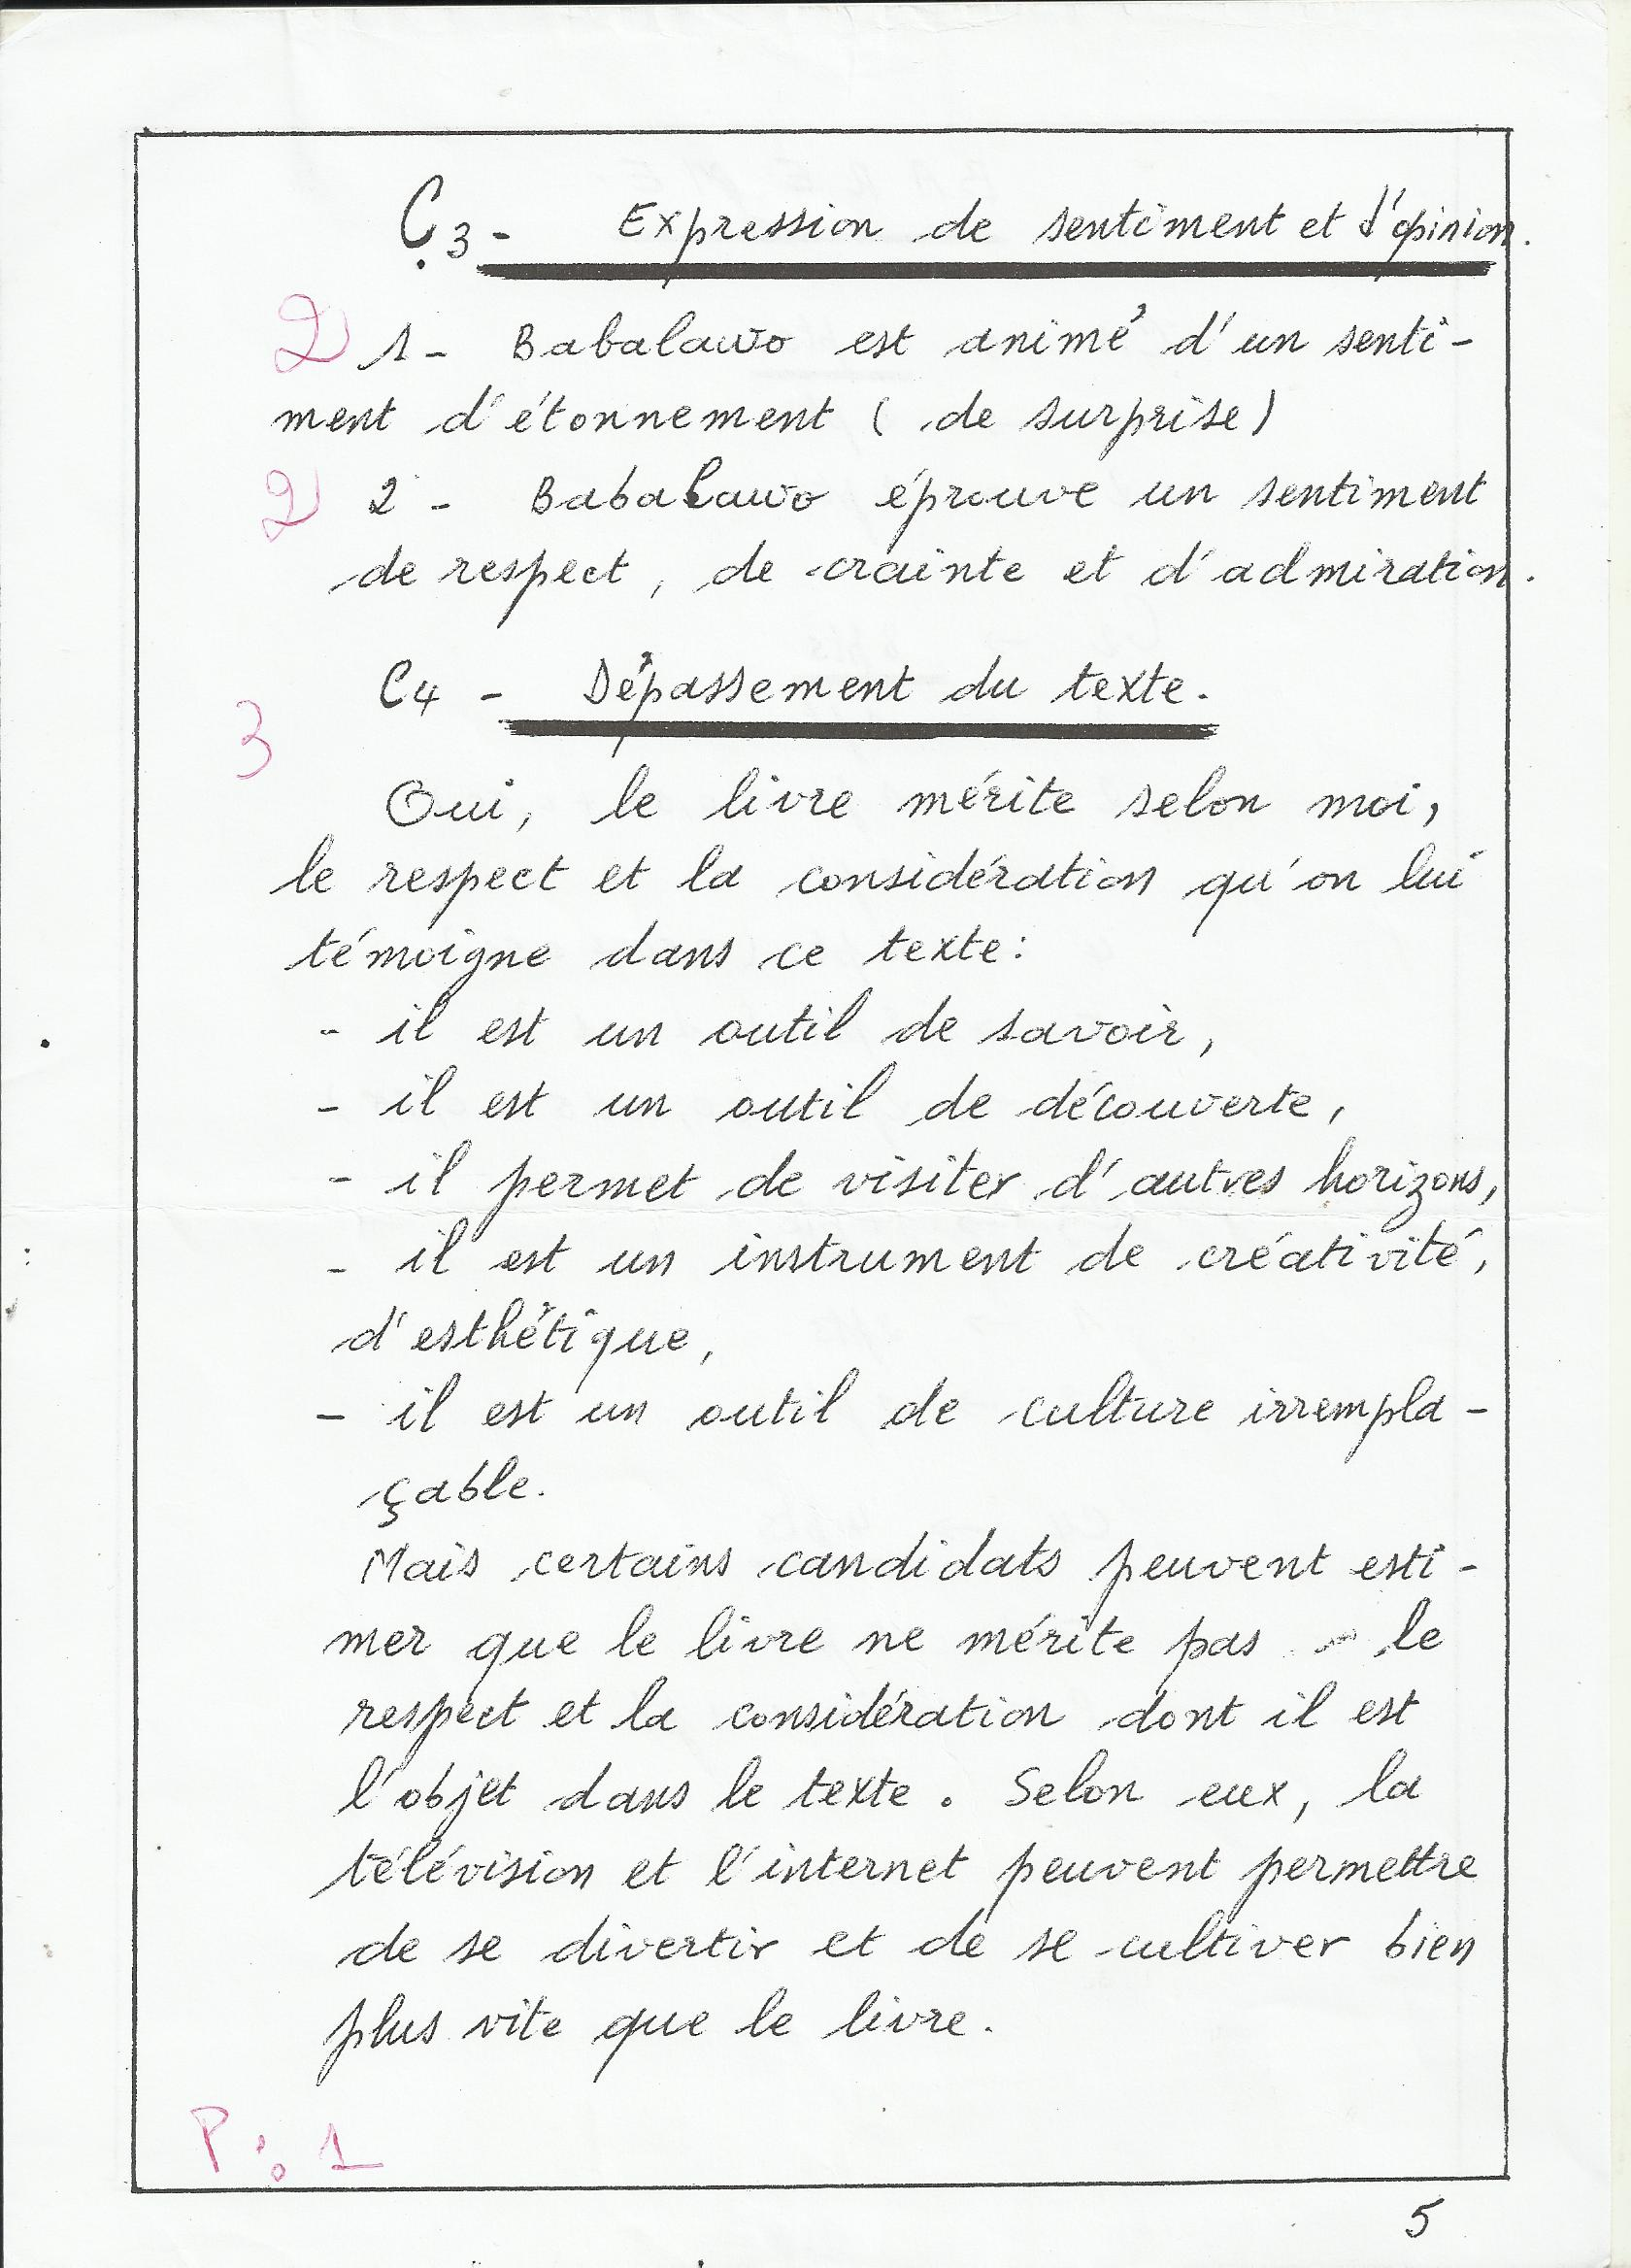 C3 - Expression de sentiment et d'opinion.
2 1 - Babalawo est animé d'un senti-
ment d'étonnement ( de surprise)
2 2 - Babalawo éprouve un sentiment
de respect, de crainte et d'admiration.
C4 - Dépassement du texte.
3
Oui, le livre mérite selon moi,
le respect et la considération qu'on lui
témoigne dans ce texte:
- il est un outil de savoir,
- il est un outil de découverte,
- il permet de visiter d'autres horizons,
- il est un instrument de créativité,
d'esthétique,
- il est un outil de culture irrempla-
çable.
Mais certains candidats peuvent esti-
mer que le livre ne mérite pas le
respect et la considération dont il est
l'objet dans le texte. Selon eux, la
télévision et l'internet peuvent permettre
de se divertir et de se cultiver bien
plus vite que le livre.
P: 1
5